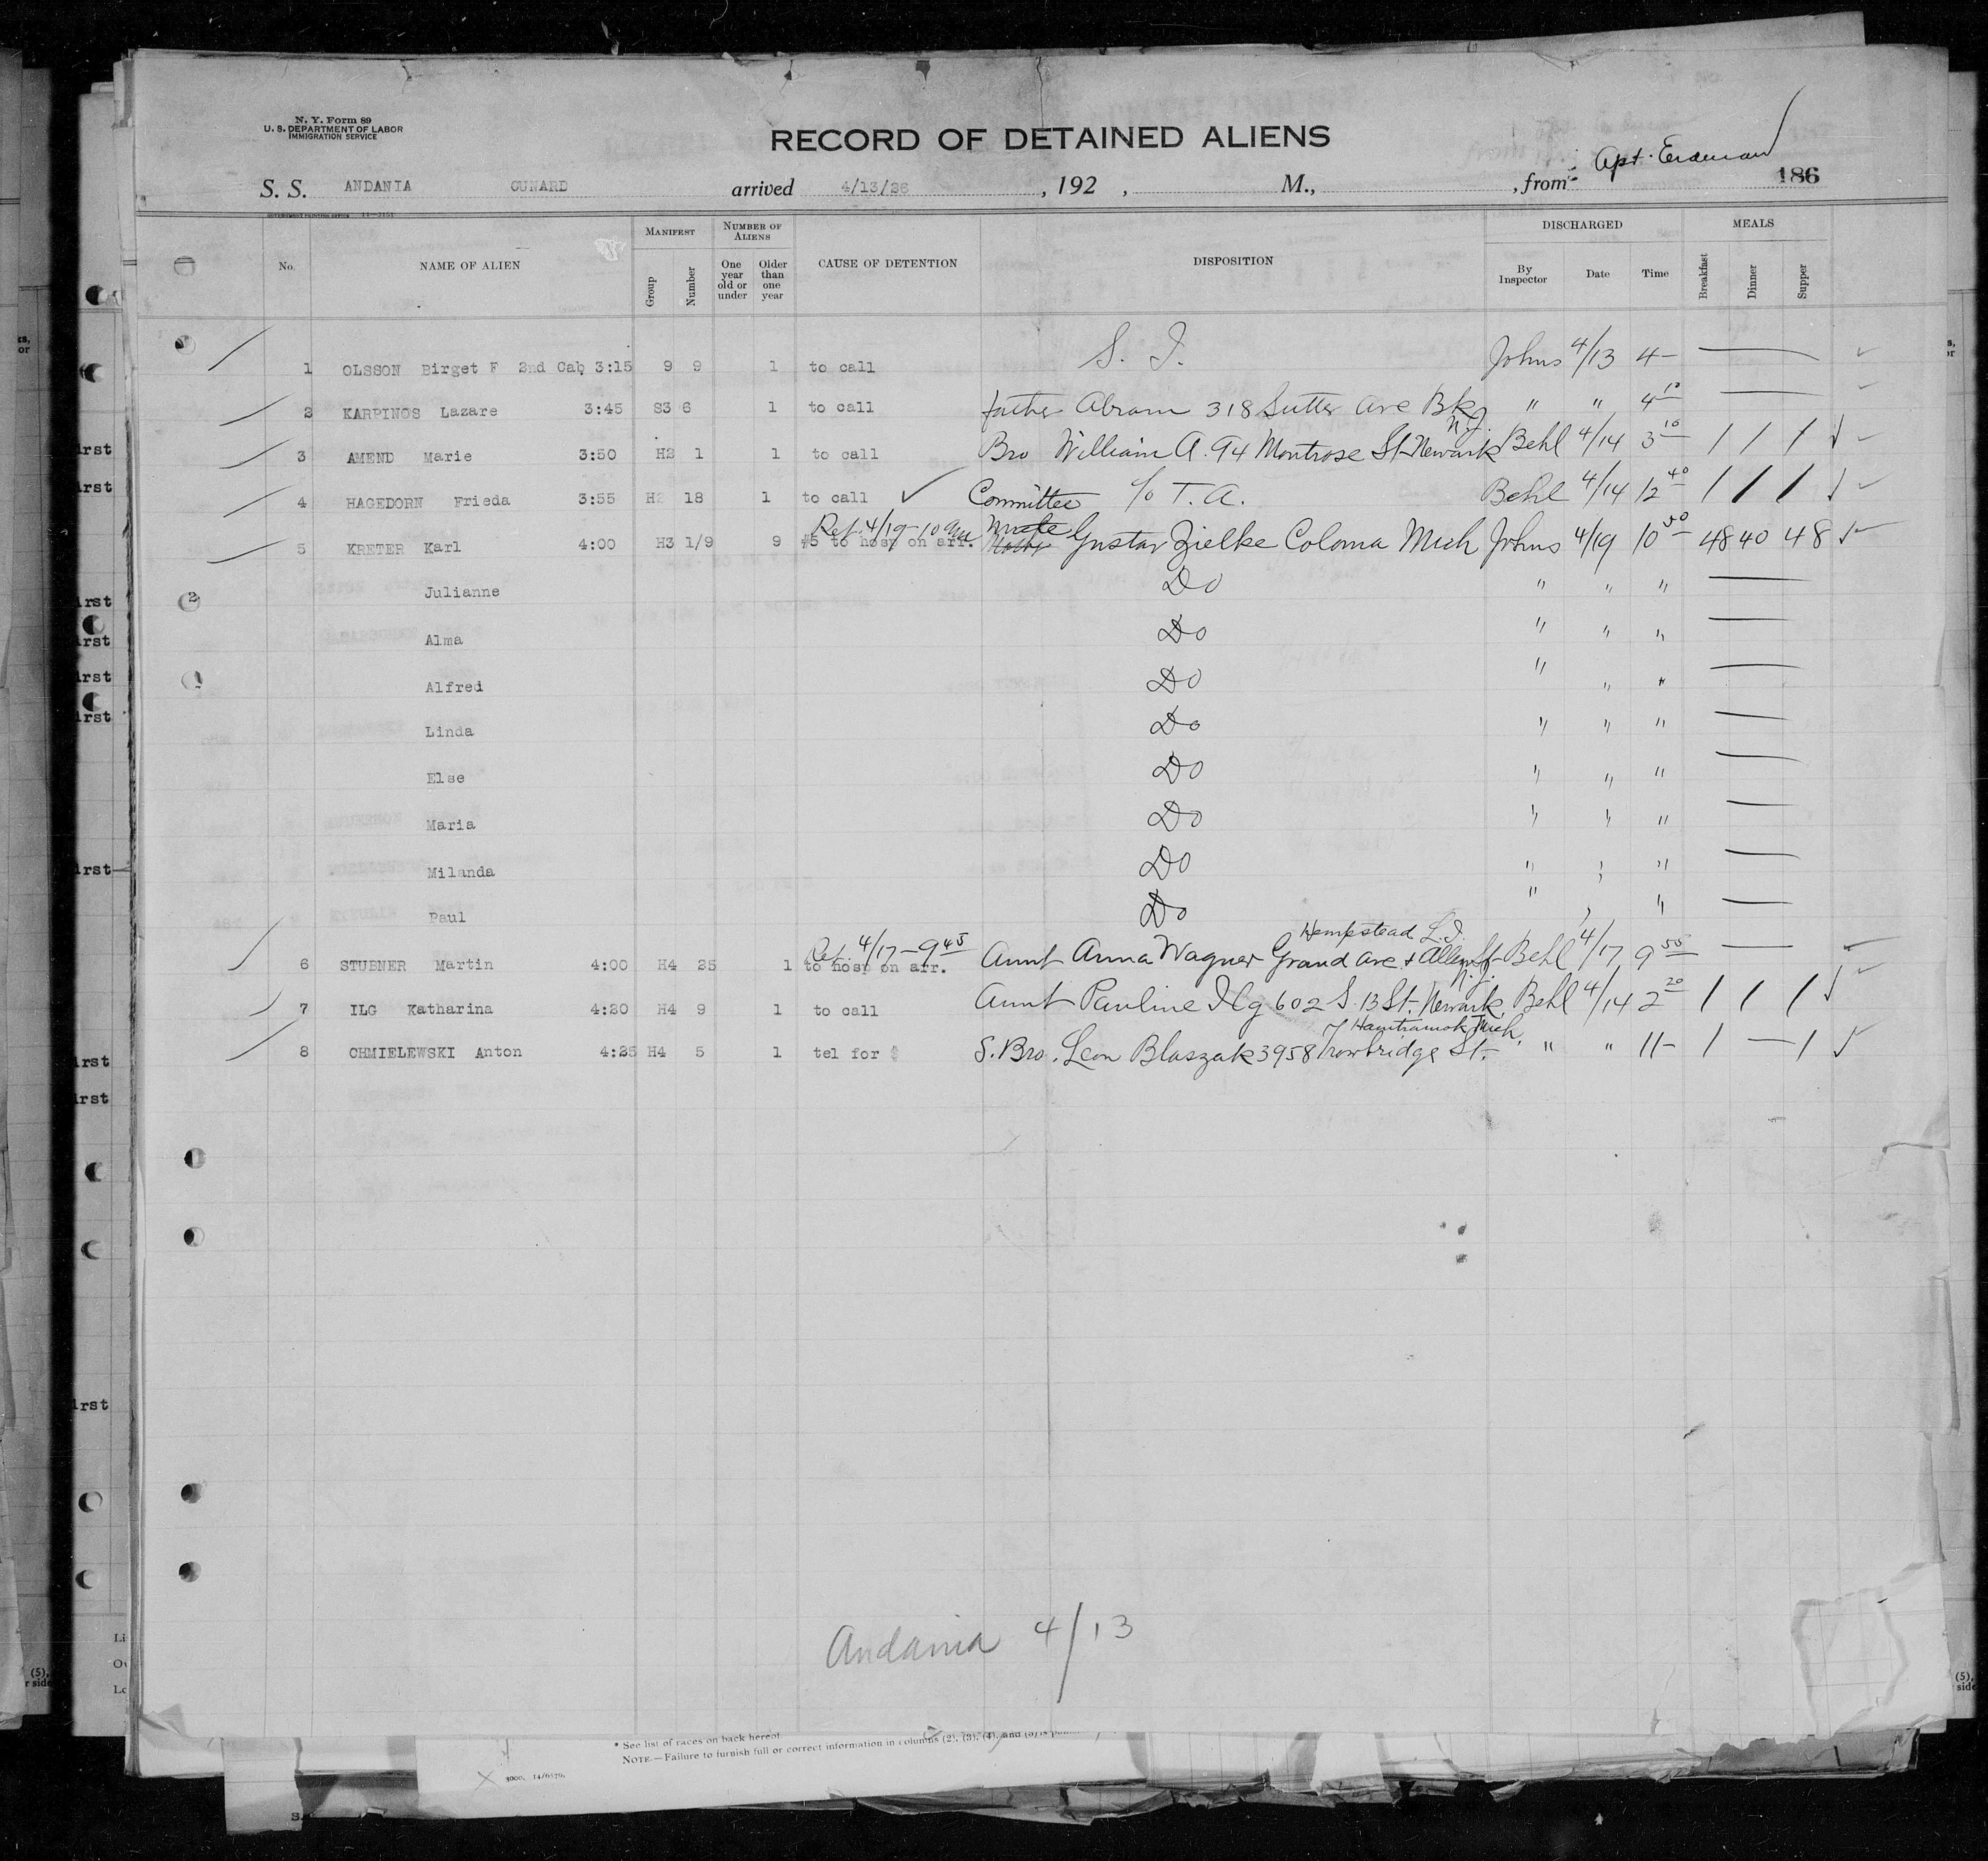 N. Y. Form 89
U. S. DEPARTMENT OF LABOR
IMMIGRATION SERVICE
RECORD OF DETAINED ALIENS
S. S. ANDANIA CUNARD arrived 4/13/26, 192 , M., , from 186
No. NAME OF ALIEN MANIFEST Group Number NUMBER OF ALIENS One year old or under Older than one year CAUSE OF DETENTION DISPOSITION DISCHARGED By Inspector Date Time MEALS Breakfast Dinner Supper
1 OLSSON Birget F 2nd Cab 3:15 9 9 1 to call S. I. Johns 4/13 4—
2 KARPINOS Lazare 3:45 S3 6 1 to call father Abram 318 Sutter Ave Bk " " 4 10
N.J.
3 AMEND Marie 3:50 H2 1 1 to call Bro William A. 94 Montrose St Newark Behl 4/14 3 10 / / / ✓
4 HAGEDORN Frieda 3:55 H2 18 1 to call ✓ Committee c/o T. A. Behl 4/14 12 40 / / / ✓
Ret. 4/19 - 10
5 KRETER Karl 4:00 H3 1/9 9 #5 to hosp on arr. Gustav Zielke Coloma Mich Johns 4/19 10 50 48 40 48 ✓
Julianne Do " " "
Alma Do " " "
Alfred Do " " "
Linda Do " " "
Else Do " " "
Maria Do " " "
Milanda Do " " "
Paul Do " " "
Ret. 4/17 - 9 45 Hempstead L.I.
6 STUBNER Martin 4:00 H4 25 1 to hosp on arr. Aunt Anna Wagner Grand Ave & Allen St Behl 4/17 9 55
N.J.
7 ILG Katharina 4:20 H4 9 1 to call Aunt Pauline Ilg 602 S. 13 St. Newark, Behl 4/14 2 20 / / / ✓
Hamtramck Mich.
8 CHMIELEWSKI Anton 4:25 H4 5 1 tel for $ S. Bro. Leon Blaszak 3958 Trowbridge St. " " 11— / — / ✓
Andania 4/13
* See list of races on back hereof.
NOTE.—Failure to furnish full or correct information in columns (2), (3), (4), and (5) is
3000. 14/6570.